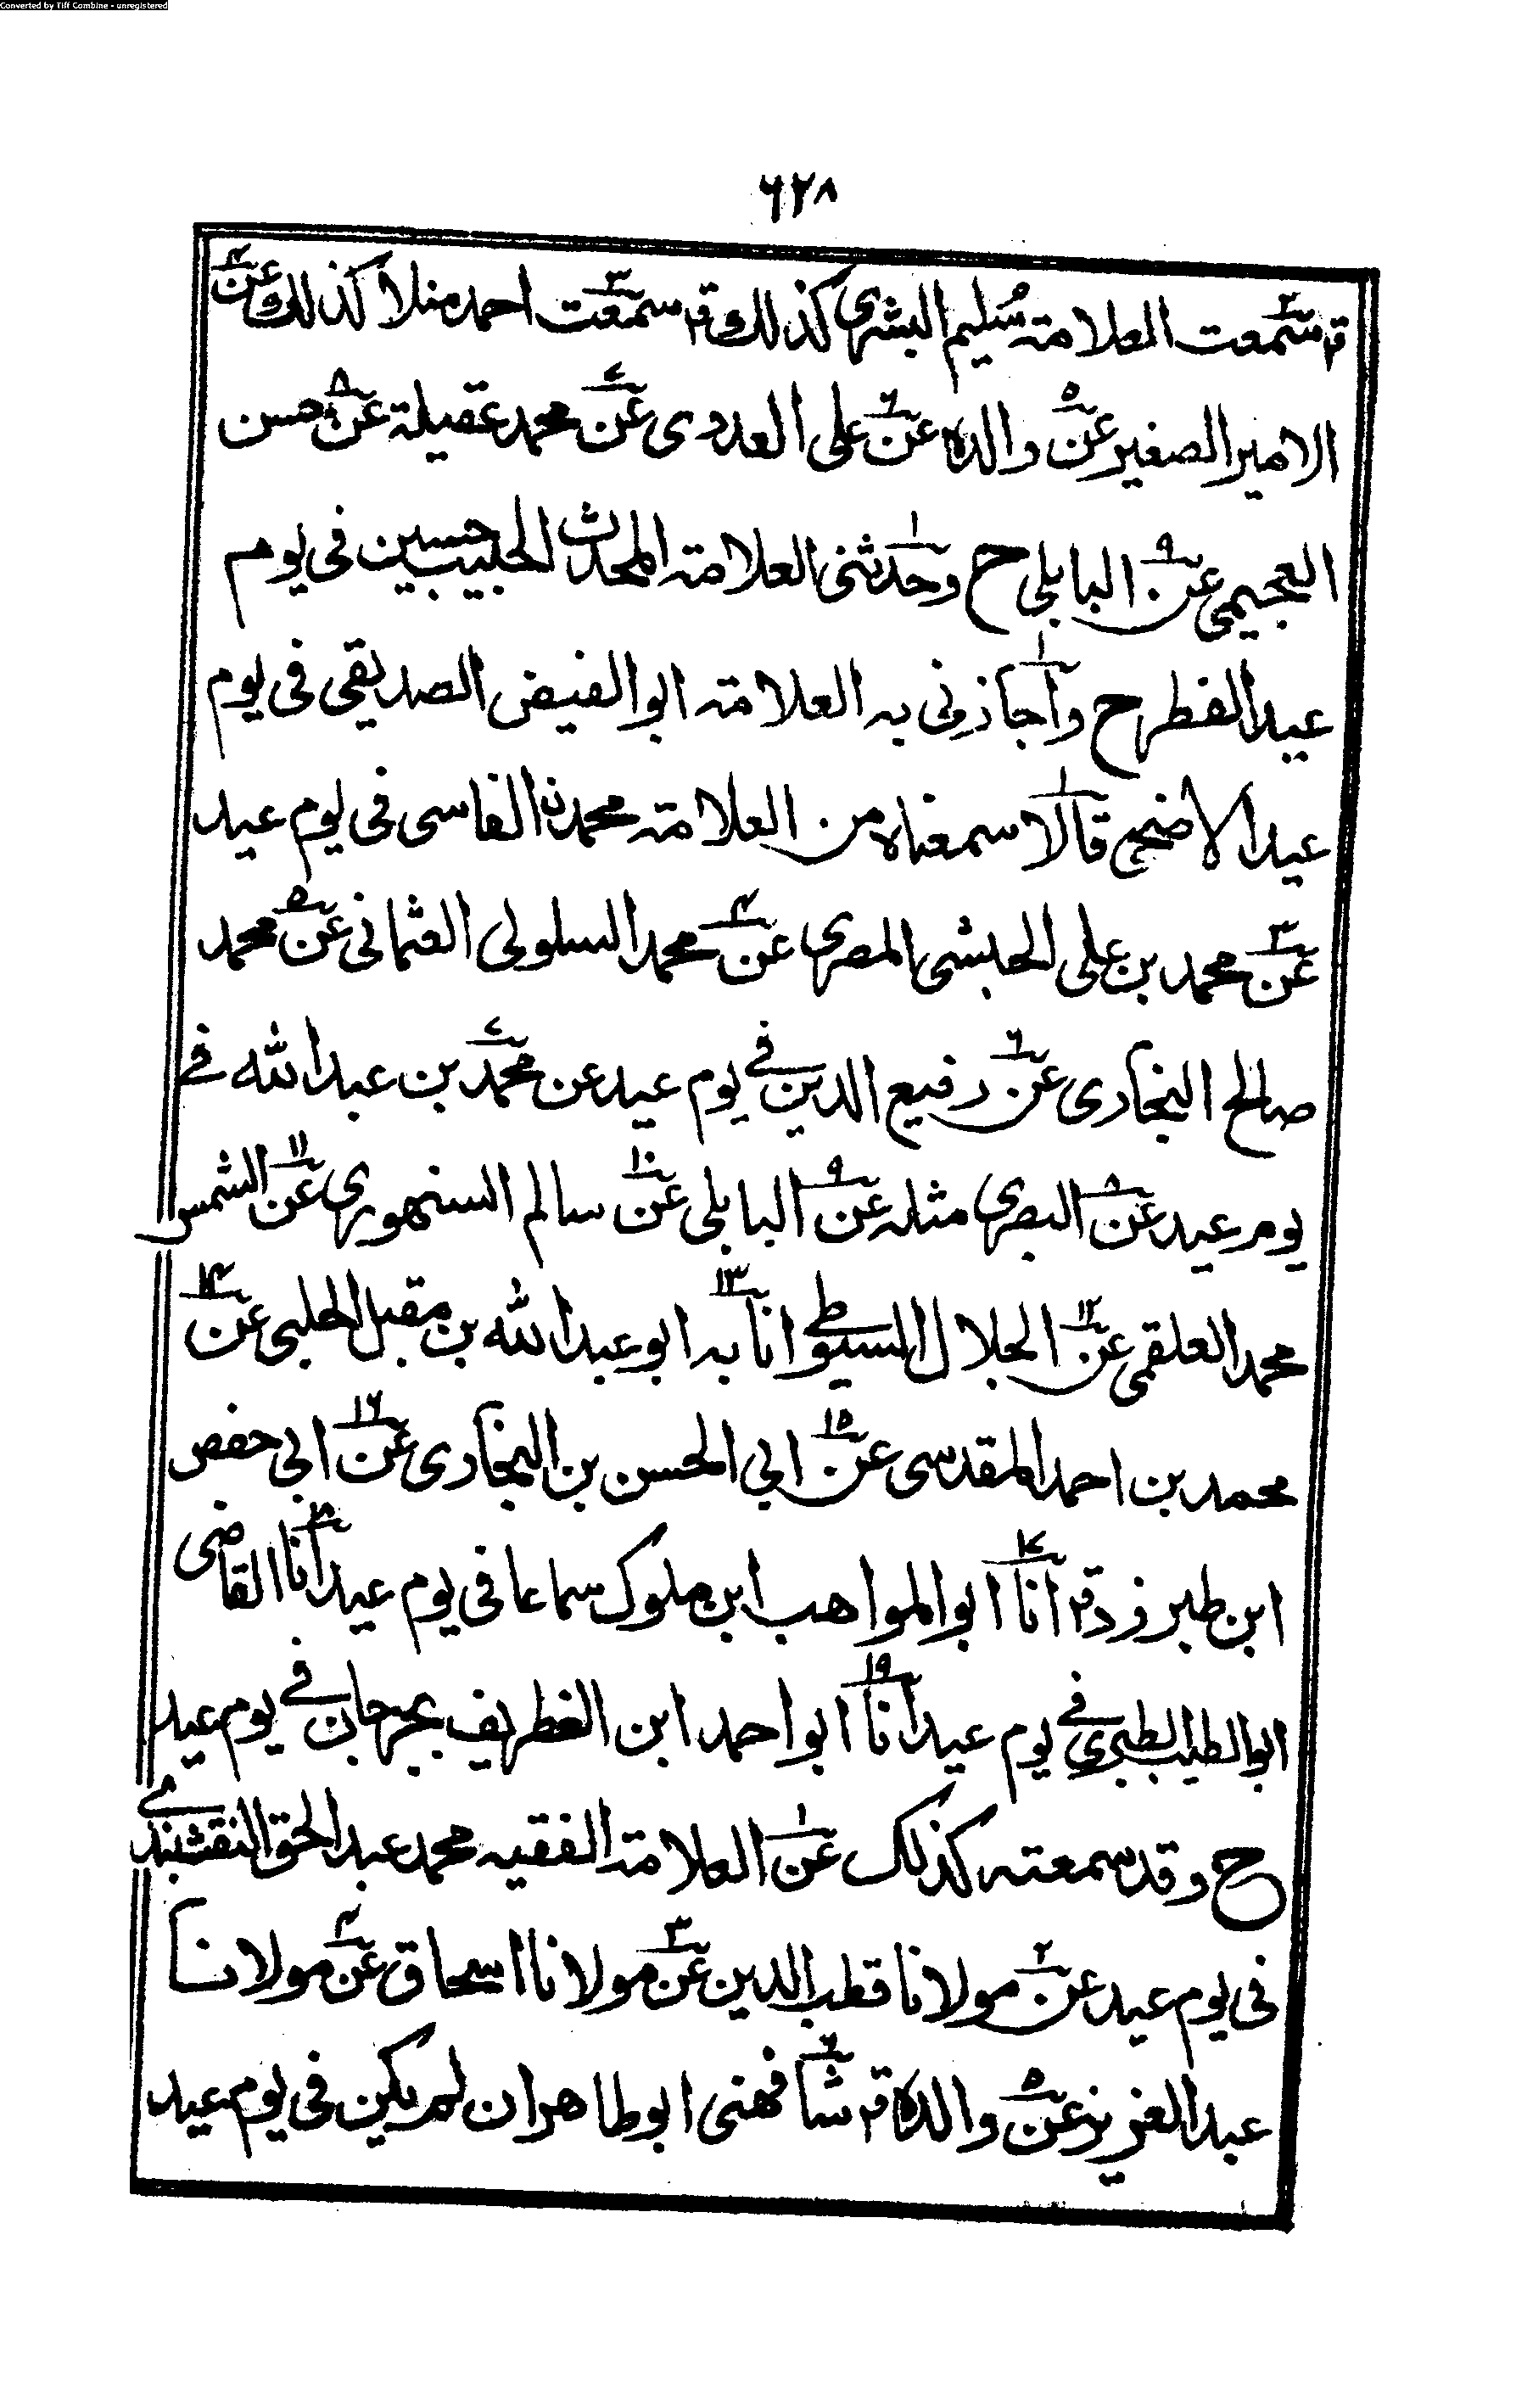 Converted by Tiff Combine - unregistered
٦٢٨
قا سمعت العلامة سليم البشرى كذلك قا سمعت احمد منلا كذلك عن
الامير الصغير عن والده عن على العدوى عن محمد عقيلة عن حسن
العجيمى عن البابلى ح وحدثنى العلامة المحدث الحبيب حسين فى يوم
عيد الفطر ح واجازنى به العلامة ابو الفيض الصديقى فى يوم
عيد الاضحى قالا سمعناه من العلامة محمد نا الفاسى فى يوم عيد
عن محمد بن على الحبشى المصرى عن محمد السلولى العثمانى عن محمد
صالح البخارى عن رفيع الدين فى يوم عيد عن محمد بن عبد الله فى
يوم عيد عن البصرى مثله عن البابلى عن سالم السنهورى عن الشمس
محمد العلقمى عن الجلال السيوطى انا به ابو عبد الله بن مقبل الحلبى عن
محمد بن احمد المقدسى عن ابى الحسن بن البخارى عن ابى حفص
ابن طبرزد قا انا ابو المواهب ابن ملوك سماعا فى يوم عيد انا القاضى
ابو الطيب الطبرى فى يوم عيد انا ابو احمد ابن الغطريف بجرجان فى يوم عيد
ح وقد سمعته كذلك عن العلامة الفقيه محمد عبد الحق النقشبندى
فى يوم عيد عن مولانا قطب الدين عن مولانا اسحاق عن مولانا
عبد العزيز عن والده قا شافهنى ابو طاهر ان لم يكن فى يوم عيد